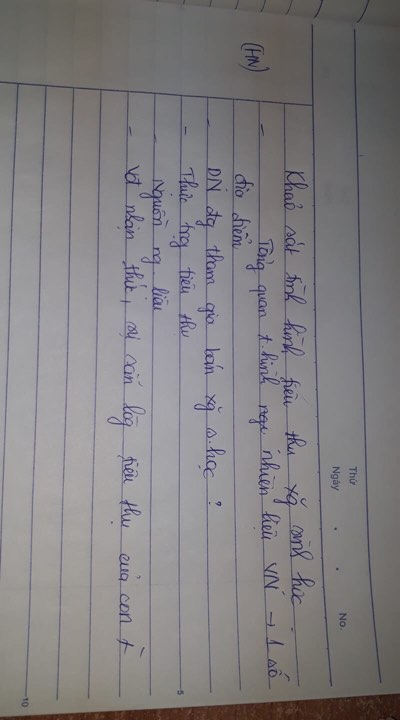 Thứ
Ngày . . No.
Khảo sát tình hình tiêu thụ xg sinh học.
- Tổng quan t.hình nhiên liệu VN → 1 số
(HN) địa điểm
- DN đg tham gia bán xg s.học?
- Thực trg tiêu thụ
- Nguồn ng. liệu
- Về nhận thức, sự sẵn lòg tiêu thụ của con
5
10